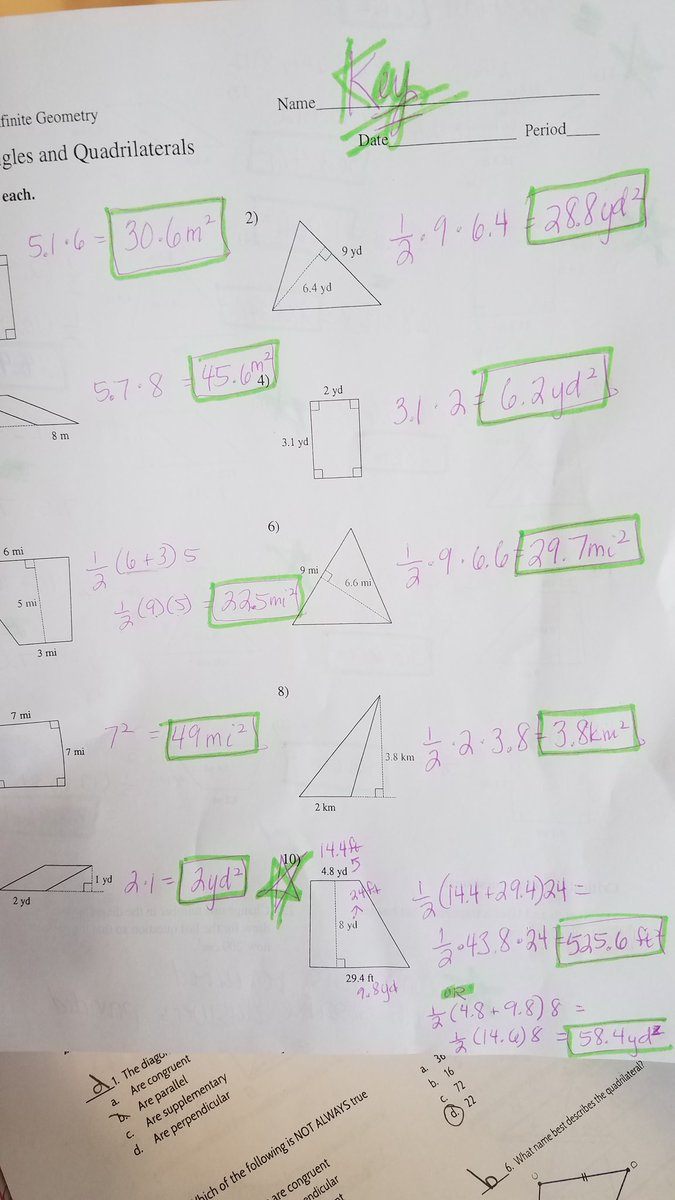 Key
Name
finite Geometry
Date
Period
gles and Quadrilaterals
each.
5.1·6 = 30.6m²
2)
9 yd
6.4 yd
1/2·9·6.4 = 28.8yd²
5.7·8 = 45.6m²
8 m
4)
2 yd
3.1 yd
3.1·2 = 6.2yd²
6 mi
5 mi
3 mi
1/2(6+3)5
1/2(9)(5) = 22.5mi²
6)
9 mi
6.6 mi
1/2·9·6.6 = 29.7mi²
7 mi
7 mi
7² = 49mi²
8)
3.8 km
2 km
1/2·2·3.8 = 3.8km²
1 yd
2 yd
2·1 = 2yd²
10)
14.4ft
4.8 yd
24ft
8 yd
29.4 ft
9.8yd
1/2(14.4+29.4)24 =
1/2·43.8·24 = 525.6 ft²
OR
1/2(4.8+9.8)8 =
1/2(14.6)8 = 58.4yd²
d 1. The diago
a. Are congruent
b. Are parallel
c. Are supplementary
d. Are perpendicular
hich of the following is NOT ALWAYS true
are congruent
a. 36
b. 16
c. 72
d. 22
b 6. What name best describes the quadrilateral?